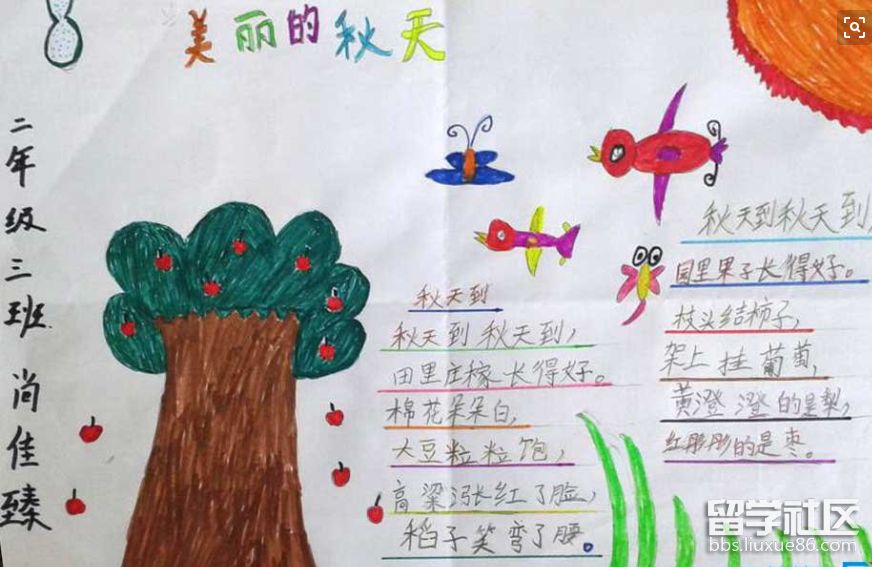 美丽的秋天
二年级三班 尚佳臻
秋天到
秋天到 秋天到，
田里庄稼长得好。
棉花朵朵白，
大豆粒粒饱，
高粱涨红了脸，
稻子笑弯了腰。
秋天到秋天到，
园里果子长得好。
枝头结柿子，
架上挂葡萄，
黄澄澄的是梨，
红彤彤的是枣。
留学社区
bbs.liuxue86.com